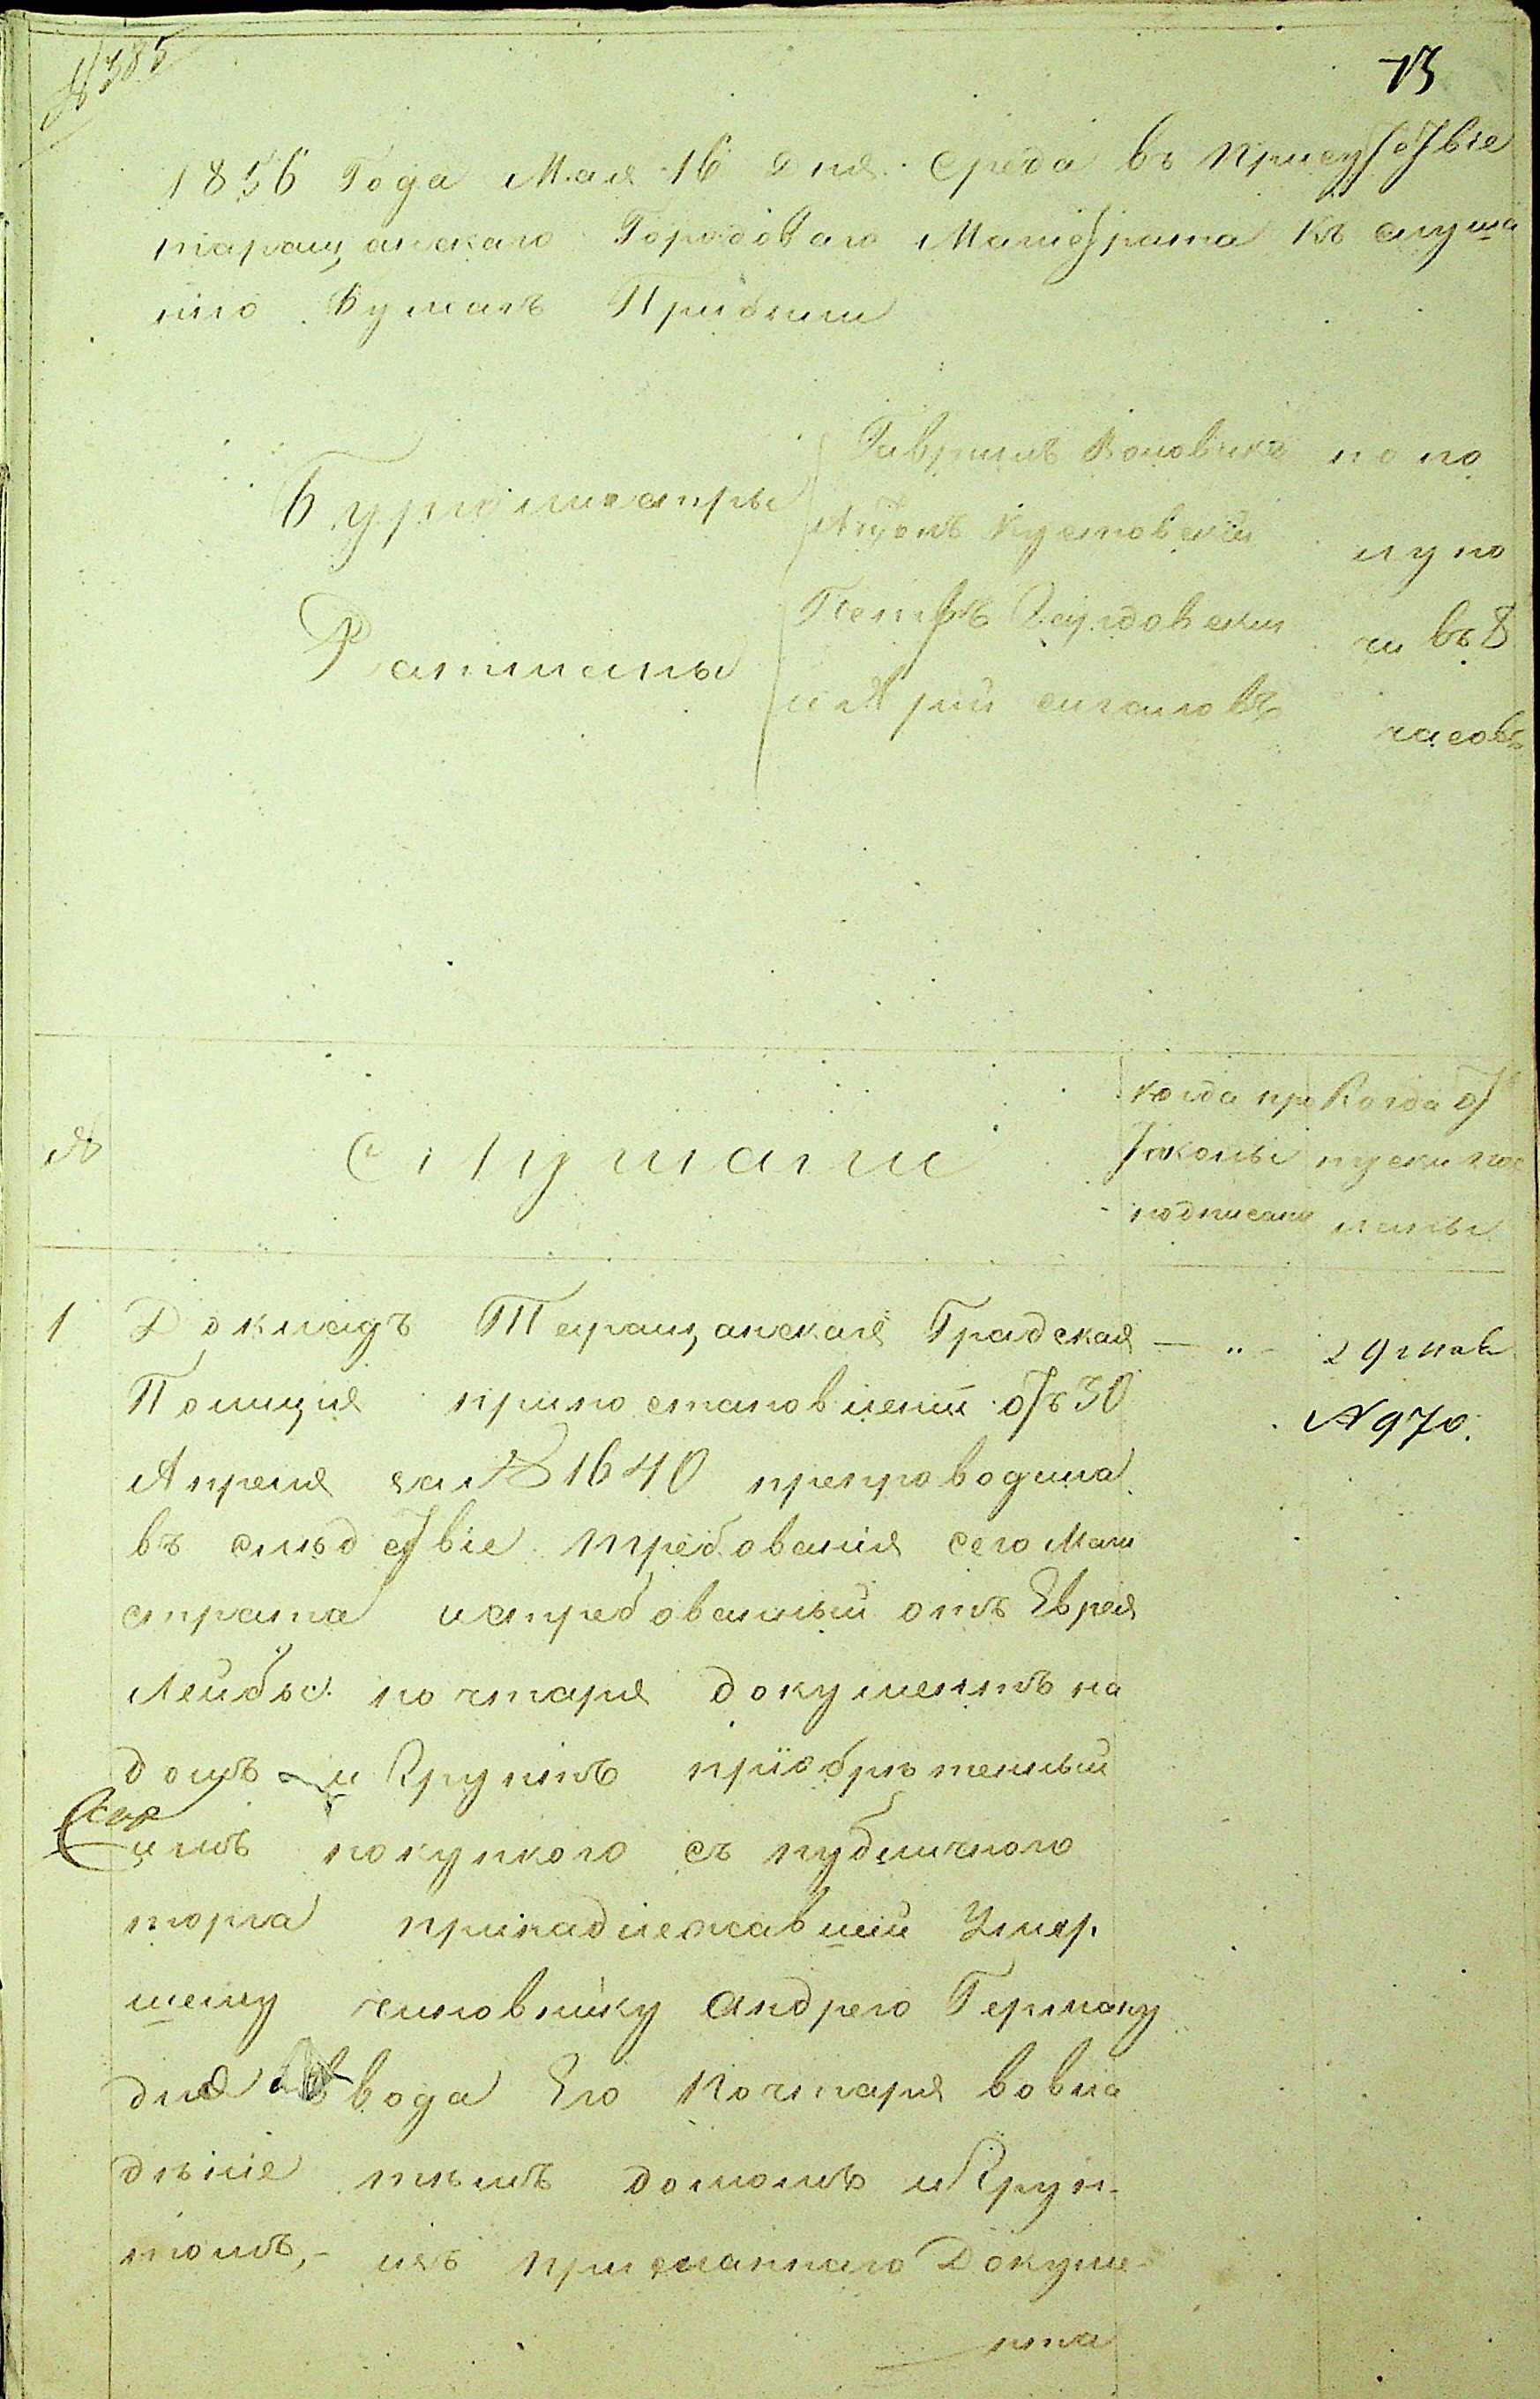 № 385
73
1856 Года Мая 16 дня. Среда въ присутствіе
таращанскаго Городоваго Магистрата къ слуша
нію Бумагъ Прибыли
Бургомистры
Гавріилъ по по
Антонъ лу но
Ратманы
Петръ чи въ 8
и часовъ
№
Слушали
Когда про Когда от
токолы пуски
подписаны лены
1 Докладъ Таращанская Градская — „ — 29 мая
Полиція при постановленіи отъ 30 № 970.
Апреля за № 1640 препроводила
въ слѣдствіе требованія сего Маги
страта истребованный отъ Еврея
Лейбы почтаря документъ на
домъ и Грунтъ пріобрѣтенный
имъ покупкою съ публичного
торга принадлежавшій Умер
шему чиновнику Андрею Герману
для ввода Его Почтаря вовла
дѣніе тѣмъ домомъ и Грун-
томъ, – изъ присланнаго Докуме-
нта